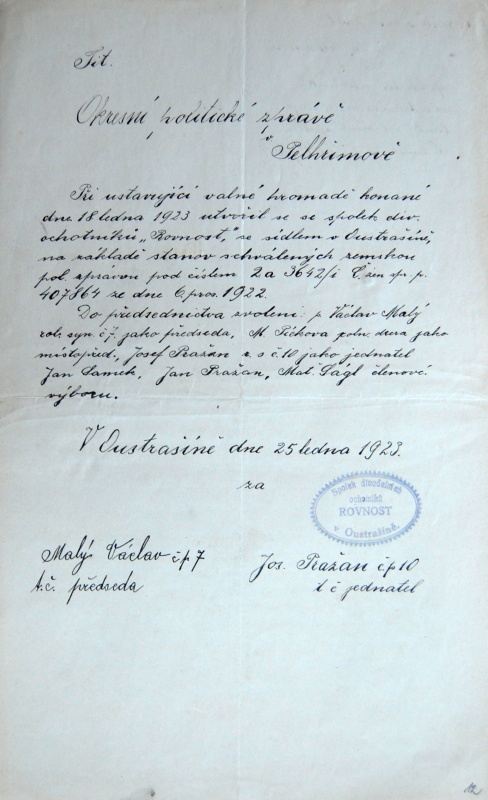 Tit.
Okresní politické zprávě
v Pelhřimově
Při ustavující valné hromadě konané
dne 18 ledna 1923 utvořil se se spolek div.
ochotníků „Rovnost," se sídlem v Oustrašíně,
na základě stanov schválených zemskou
pol. zprávou pod číslem 2a 3642/1 Č. zem sp. p.
407864 ze dne 6. pros. 1922.
Do předsednictva zvoleni: p Václav Malý
rol. syn. č 7. jako předseda, M. Píčkova poln. dcera jako
místopřed., Josef Pražán r. s č. 10 jako jednatel
Jan Samek, Jan Pražan, Mat. Ságl členové
výboru.
V Oustrašíně dne 25 ledna 1923.
za
Spolek divadelních
ochotníků
ROVNOST
v Oustrašíně.
Malý Václav č.p 7
t.č. předseda
Jos. Pražan č.p 10
t č jednatel
12